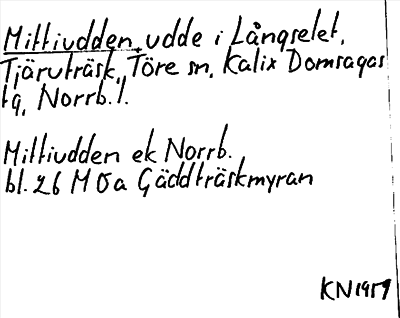 Mittiudden, udde i Långselet,
Tjäruträsk, Töre sn, Kalix Domsagas
tg, Norrb. l.
Mittiudden ek Norrb.
bl. 26 M 0a Gäddträskmyran
KN 1959